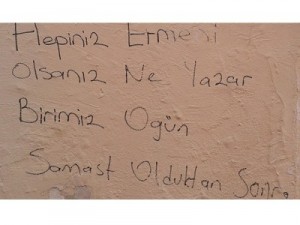 Hepiniz Ermeni
Olsanız Ne Yazar
Birimiz Ogün
Samast Olduktan Sonra